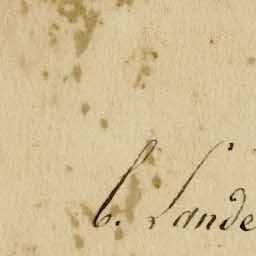 C. Lande